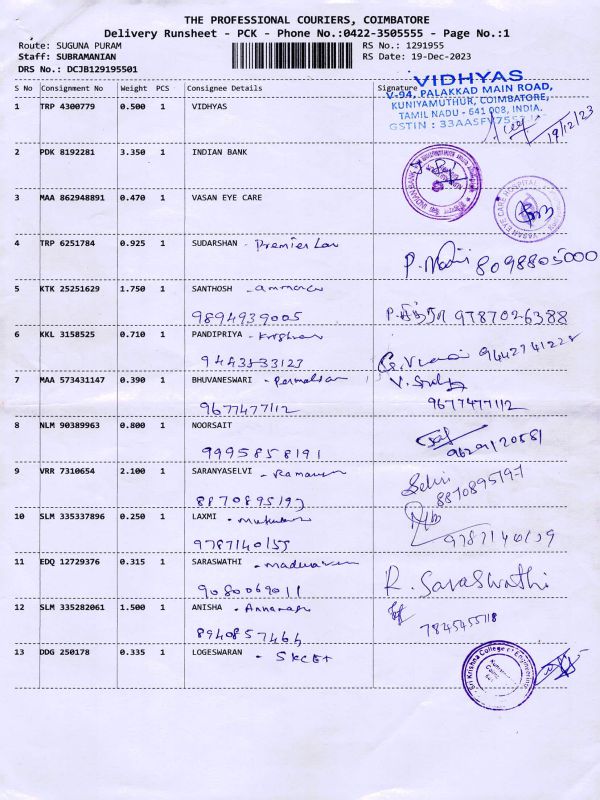 THE PROFESSIONAL COURIERS, COIMBATORE
Delivery Runsheet - PCK - Phone No.:0422-3505555 - Page No.:1
Route: SUGUNA PURAM
RS No.: 1291955
Staff: SUBRAMANIAN
RS Date: 19-Dec-2023
DRS No.: DCJB129195501
S No Consignment No Weight PCS Consignee Details Signature
VIDHYAS
V-94, PALAKKAD MAIN ROAD,
KUNIYAMUTHUR, COIMBATORE,
TAMIL NADU - 641 008, INDIA.
GSTIN : 33AASFV
1 TRP 4300779 0.500 1 VIDHYAS
19/12/23
2 PDK 8192281 3.350 1 INDIAN BANK
INDIAN BANK
3 MAA 862948891 0.470 1 VASAN EYE CARE
VASAN EYE CARE HOSPITAL
4 TRP 6251784 0.925 1 SUDARSHAN - Premier Lan
8098805000
5 KTK 25251629 1.750 1 SANTHOSH
9894939005
9787026388
6 KKL 3158525 0.710 1 PANDIPRIYA
9443533123
9442741228
7 MAA 573431147 0.390 1 BHUVANESWARI
9677477112
9677477112
8 NLM 90389963 0.800 1 NOORSAIT
9995858191
9 VRR 7310654 2.100 1 SARANYASELVI
8870895197
Selvi
8870895197
10 SLM 335337896 0.250 1 LAXMI
9787140159
11 EDQ 12729376 0.315 1 SARASWATHI
9080069011
R. Saraswathi
12 SLM 335282061 1.500 1 ANISHA
8940857464
7845455118
13 DDG 250178 0.335 1 LOGESWARAN - SKCET
Sri Krishna College of Engineering